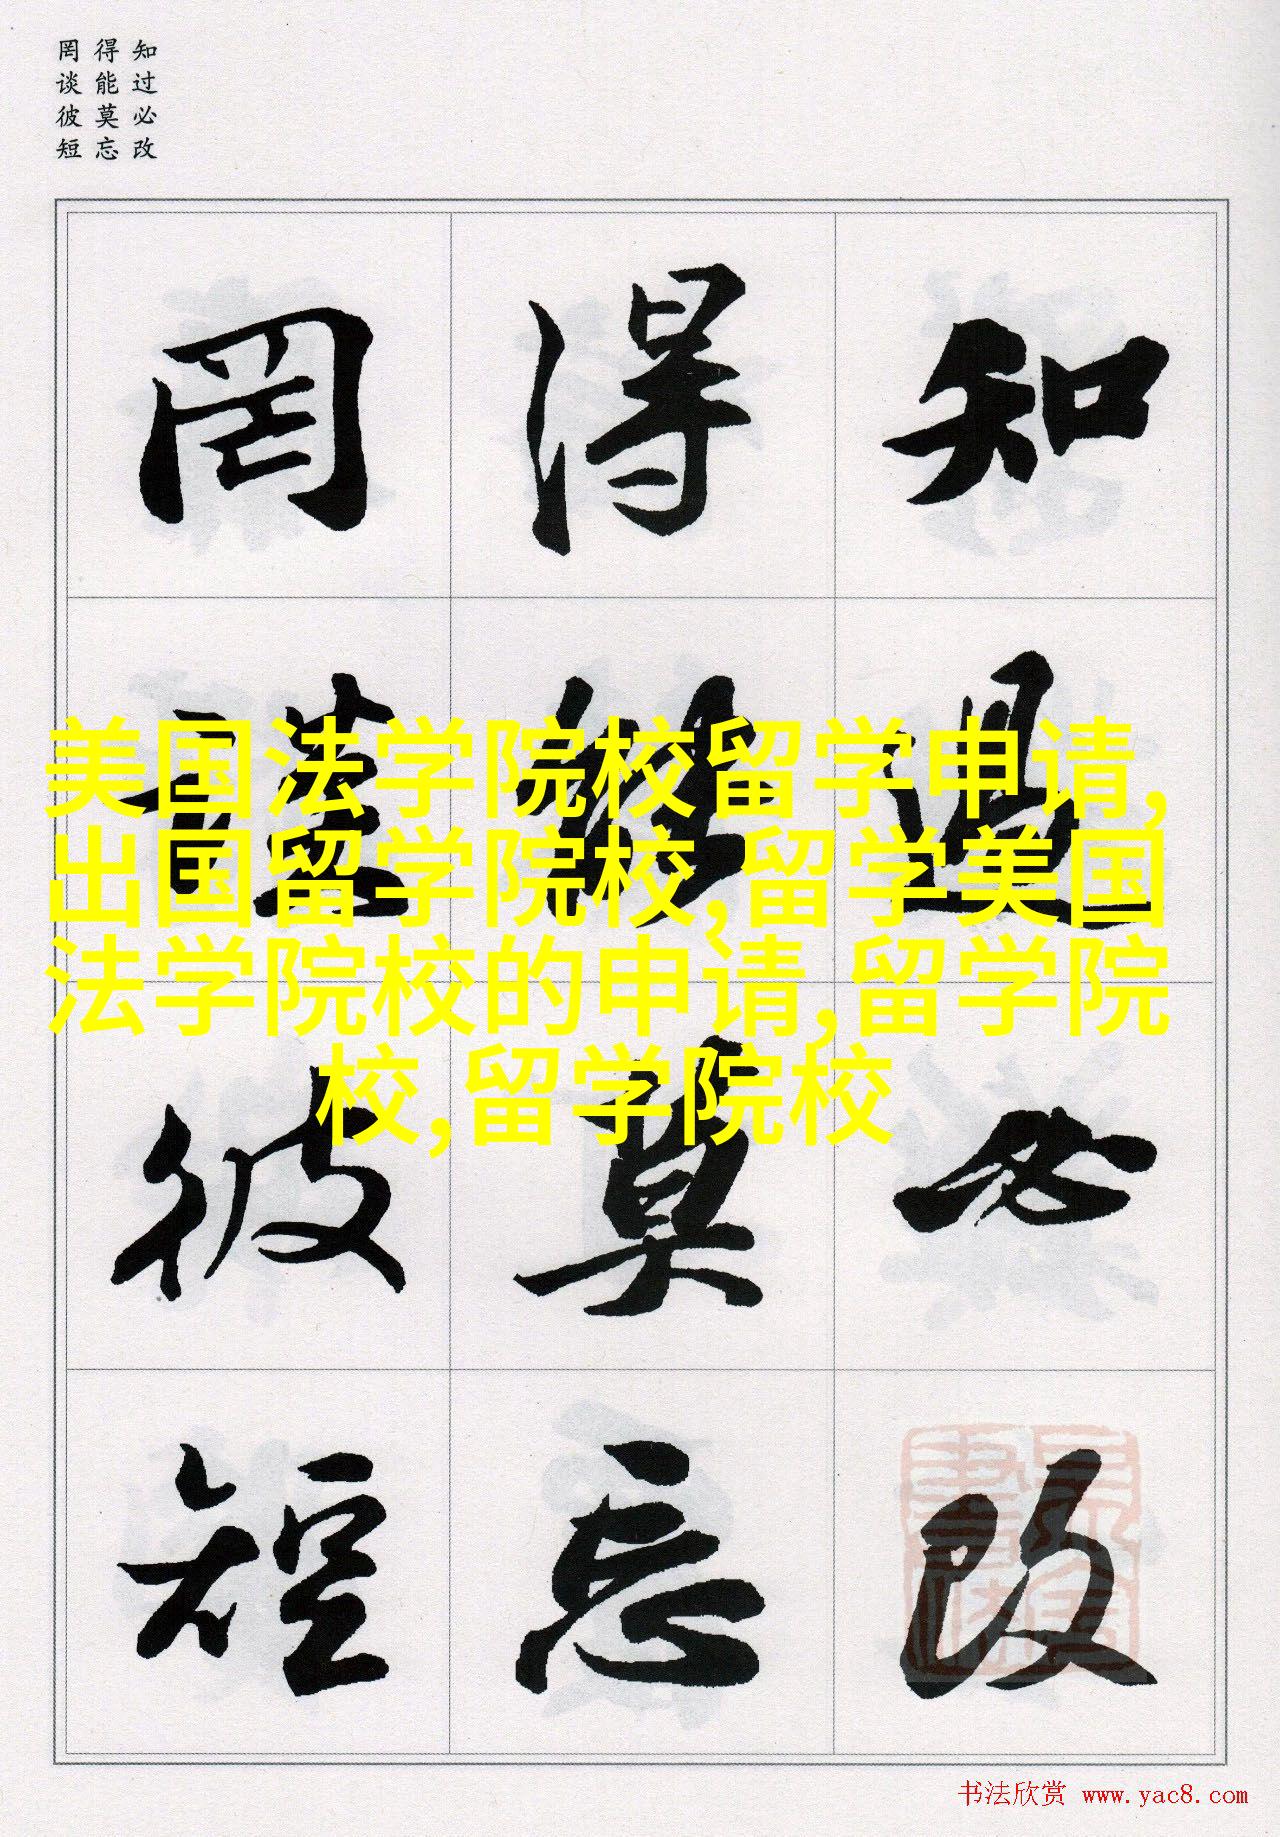 知过必改
得能莫忘
罔谈彼短
知过必改
得能莫忘
罔谈彼短
美国法学院校留学申请,
出国留学院校,留学美国
法学院校的申请,留学院
校,留学院校
书法欣赏 www.yac8.com